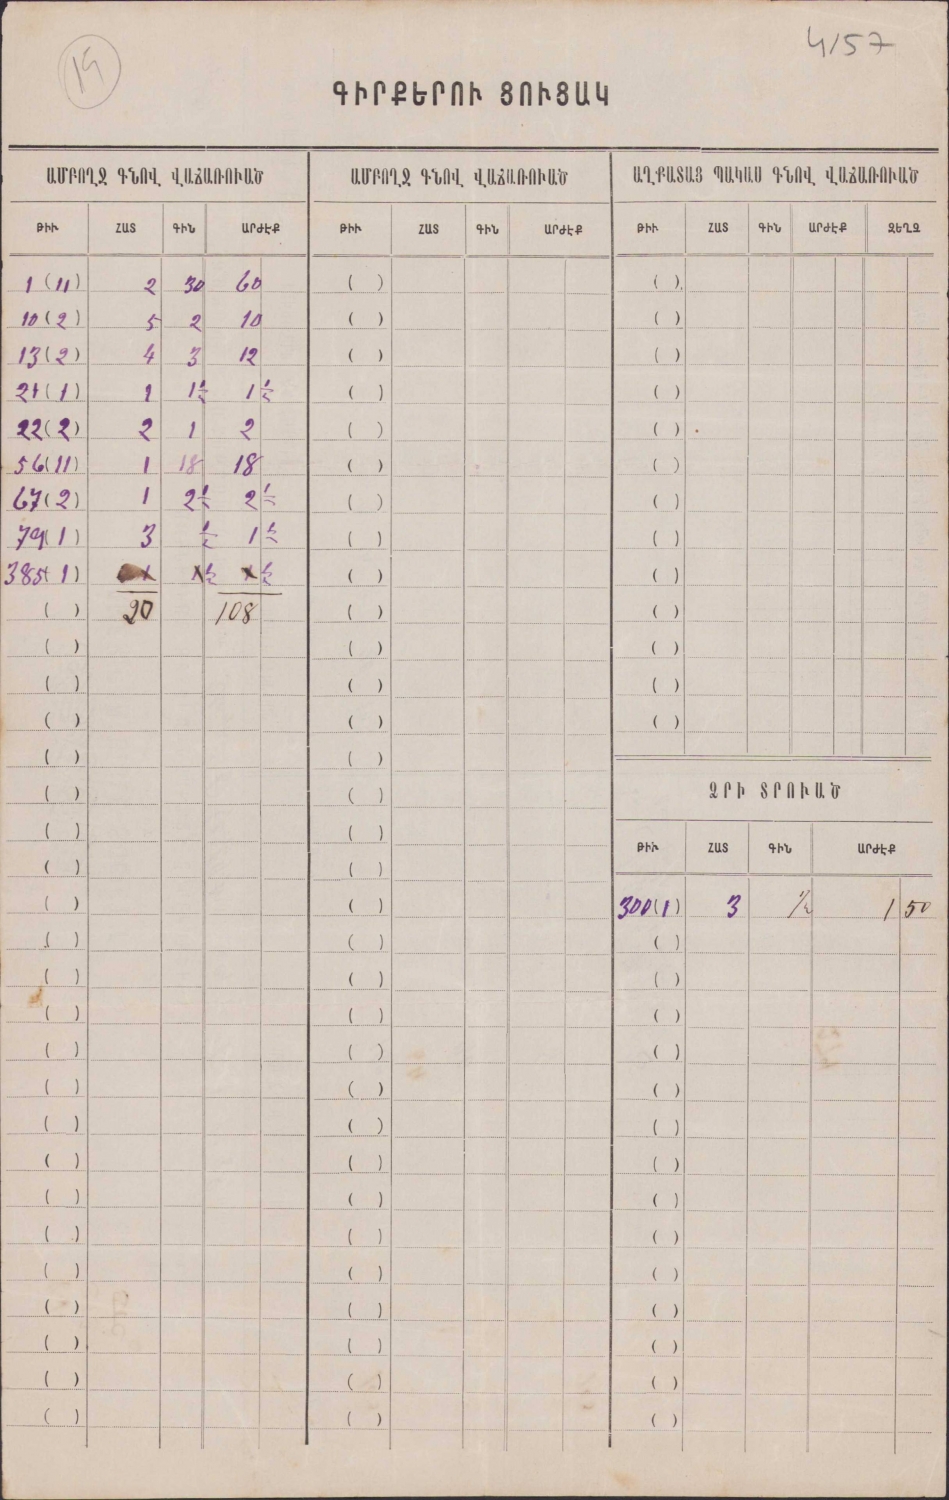 19
4157
ԳԻՐՔԵՐՈՒ ՑՈՒՑԱԿ
ԱՄԲՈՂՋ ԳՆՈՎ ՎԱՃԱՌՈՒԱԾ
ԹԻՒ ՀԱՏ ԳԻՆ ԱՐԺԷՔ
1 (11) 2 30 60
10 (2) 5 2 10
13 (2) 4 3 12
21 (1) 1 1½ 1½
22 (2) 2 1 2
56 (11) 1 18 18
67 (2) 1 2½ 2½
79 (1) 3 ½ 1½
385 (1) 1 ½ ½
( ) 20 108
ԱՄԲՈՂՋ ԳՆՈՎ ՎԱՃԱՌՈՒԱԾ
ԹԻՒ ՀԱՏ ԳԻՆ ԱՐԺԷՔ
ԱՂՔԱՏԱՑ ՊԱԿԱՍ ԳՆՈՎ ՎԱՃԱՌՈՒԱԾ
ԹԻՒ ՀԱՏ ԳԻՆ ԱՐԺԷՔ ԶԵՂՉ
ՁՐԻ ՏՐՈՒԱԾ
ԹԻՒ ՀԱՏ ԳԻՆ ԱՐԺԷՔ
300 (1) 3 ½ 1 50